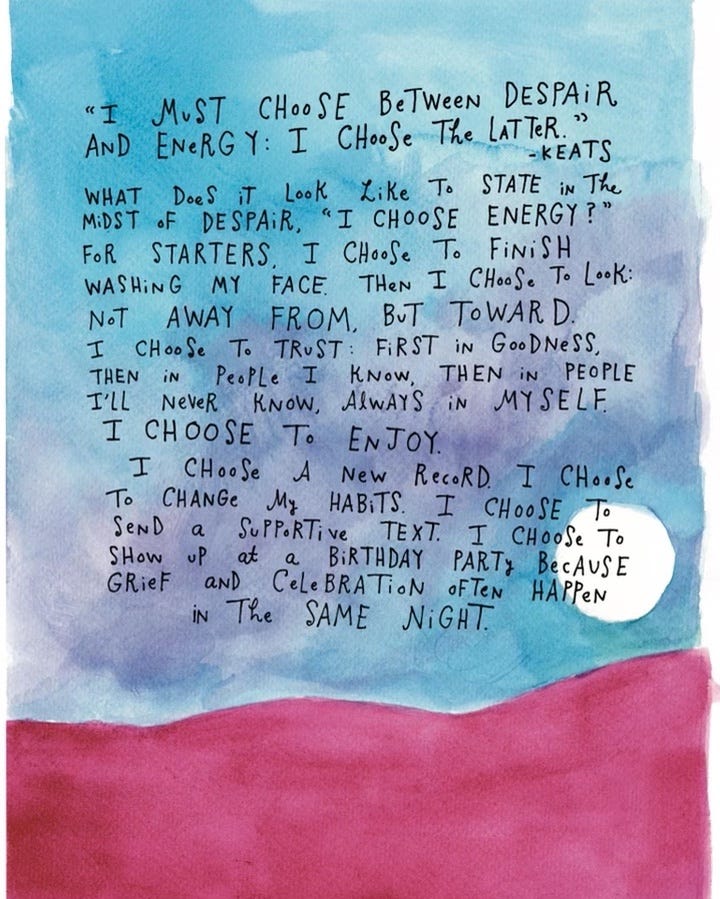 "I MuST CHooSE BeTWeeN DESPAiR
AND ENeRGY: I CHooSe The LATTeR."
-KEATS
WHAT DoeS iT LooK LiKe To STATE iN The
MiDST oF DESPAiR, "I CHOOSE ENERGY?"
FoR STARTERS, I CHooSe To FiNiSH
WASHiNG MY FACE. THeN I CHooSe To LooK:
NoT AWAY FROM, BuT ToWARD.
I CHooSe To TRuST: FiRST iN GooDNeSS,
THEN iN PeoPLe I KNoW, THEN iN PEOPLE
I'LL NeVeR KNoW, AlWAYS iN MYSELF.
I CHOOSE To ENJOY.
I CHooSe A NeW RecoRD. I CHooSe
To CHANGe My HABiTS. I CHOOSE To
SeND a SuPPoRTiVe TEXT. I CHOOSe To
SHoW uP at a BiRTHDAY PARTy BecAUSE
GRieF aND CeLeBRATioN oFTeN HAPPeN
iN The SAME NiGHT.